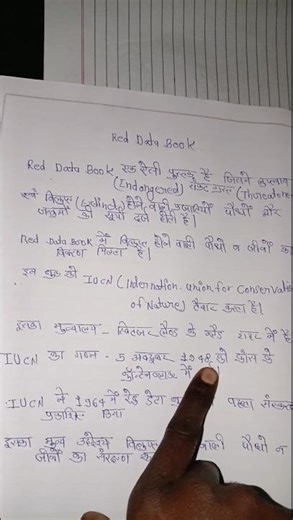 Red Data Book
Red Data Book एक ऐसी पुस्तक है जिसमें
(Endangered) संकट ग्रस्त
एवं विलुप्त (Extinct) होने वाली प्रजातियों पौधों और
जन्तुओं की सूची दर्ज होती है।
Red Data Book में विलुप्त होने वाली पौधो व जीवों का
विवरण मिलता है।
इस बुक को IUCN (Internation. union for Conservat
of Nature) तैयार करता है।
इसका मुख्यालय - स्विट्जरलैंड के ग्लैंड शहर में है
IUCN का गठन - 5 अक्टूबर 1948 को फ्रांस के
में
IUCN ने 1964 में रेड डेटा पहला संस्करण
प्रकाशित किया
इसका मुख्य उद्देश्य विलुप्त वाली पौधो व
जीवों का संरक्षण